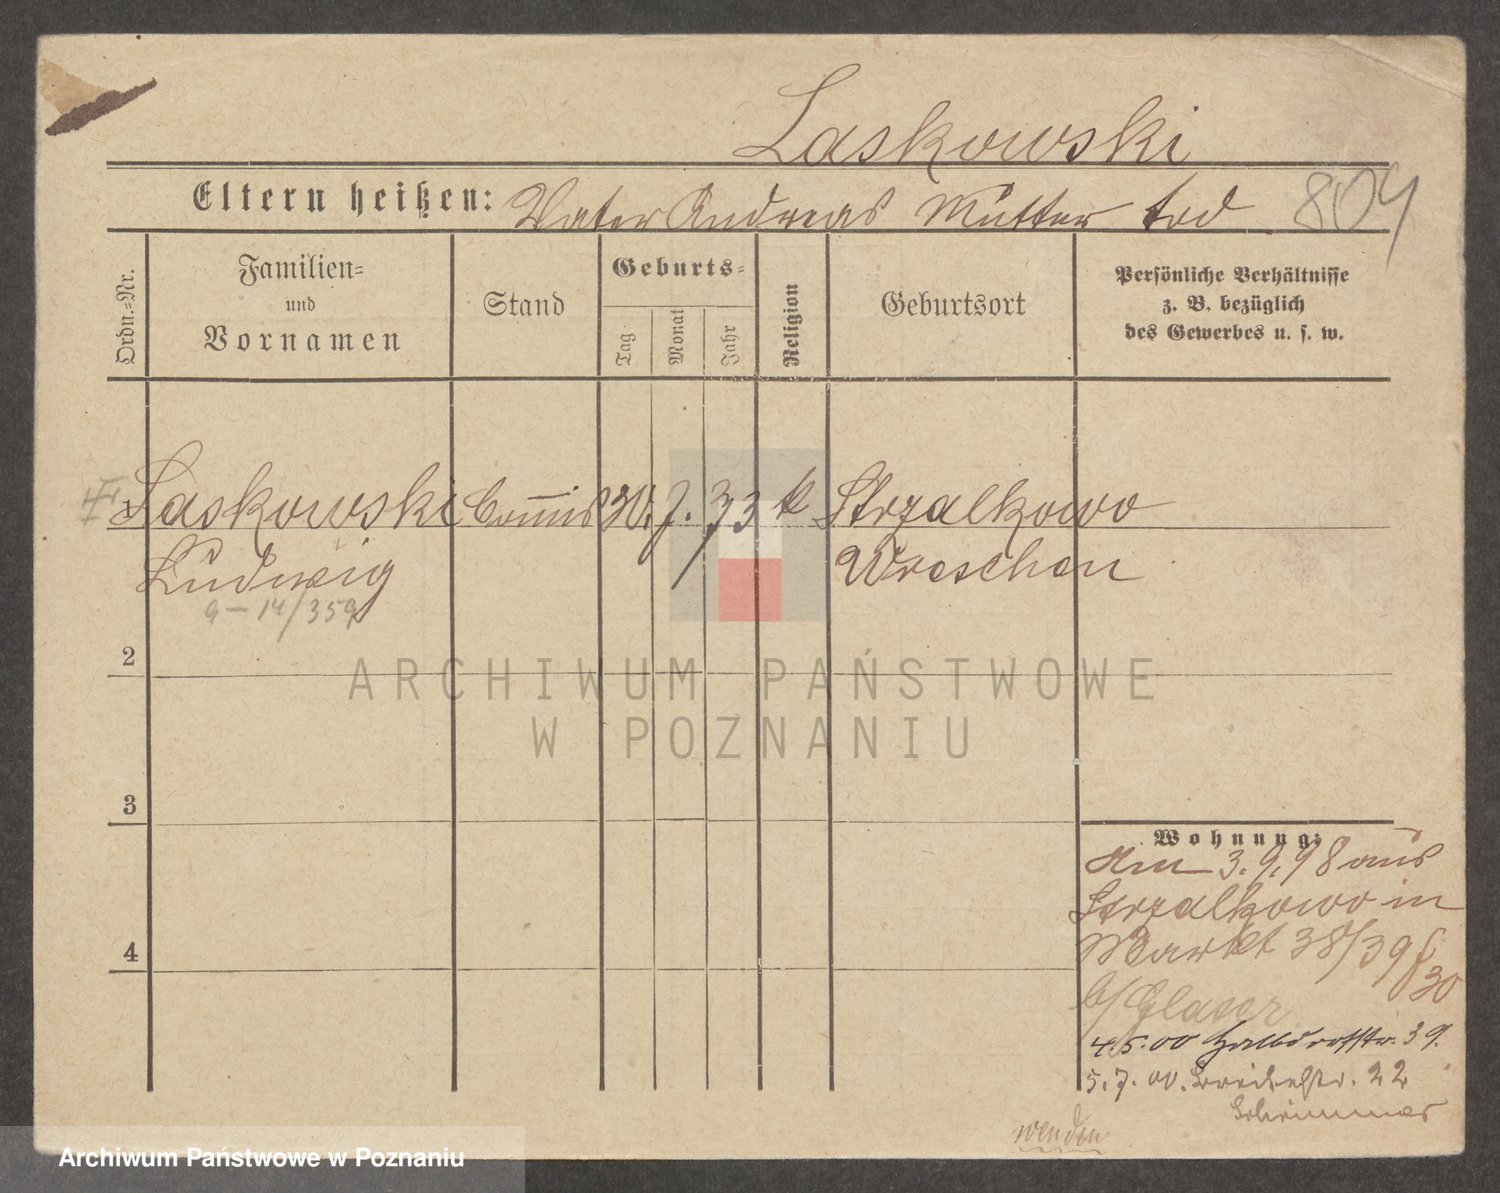 Laskowski
Eltern heißen: Vater Andreas Mutter tod 804
Ordn.=Nr.
Familien=
und
Vornamen
Stand
Geburts=
Tag
Monat
Jahr
Religion
Geburtsort
Persönliche Verhältnisse
z. B. bezüglich
des Gewerbes u. s. w.
1 Laskowski Commis 30. 7. 73 k Strzalkowo
Ludwig Wreschen
9-14/359
2
3
4
Wohnung:
Am 3.9.98 aus
Strzalkowo in
Markt 38/39
30
b/ Glaser
4.5.00 Halbdorfstr. 39.
5.7.00. Breitestr. 22
wenden
ARCHIWUM PAŃSTWOWE
W POZNANIU
Archiwum Państwowe w Poznaniu